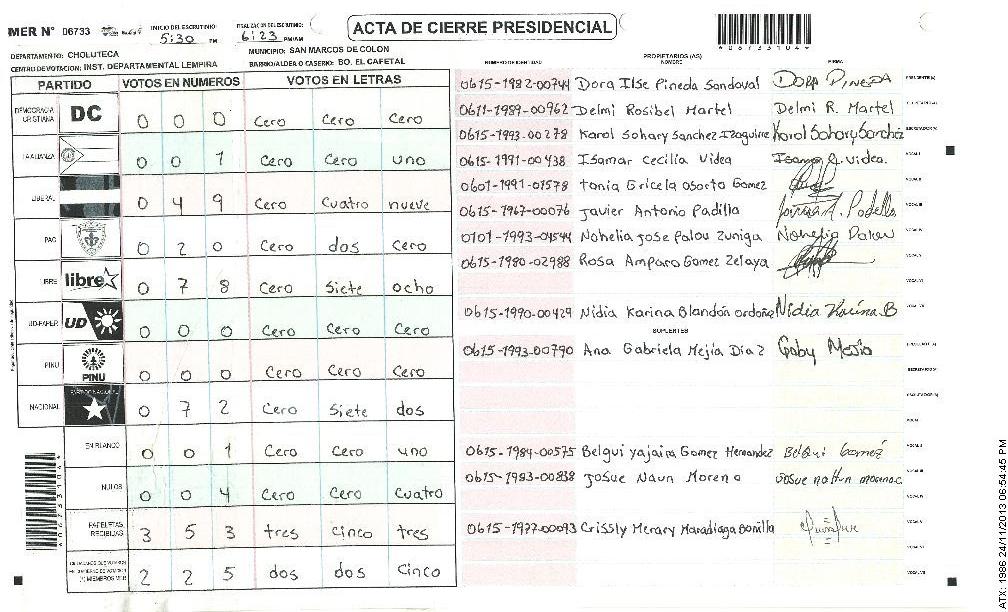 MER N° 06733
INICIO DEL ESCRUTINIO:
5:30 PM
FINALIZACION DEL ESCRUTINIO:
6:23 PM/AM
ACTA DE CIERRE PRESIDENCIAL
DEPARTAMENTO: CHOLUTECA
MUNICIPIO: SAN MARCOS DE COLON
CENTRO DE VOTACION: INST. DEPARTAMENTAL LEMPIRA
BARRIO/ALDEA O CASERIO: BO. EL CAFETAL
PARTIDO VOTOS EN NUMEROS VOTOS EN LETRAS
DEMOCRACIA CRISTIANA DC 0 0 0 Cero Cero Cero
LA ALIANZA 0 0 1 Cero Cero uno
LIBERAL 0 4 9 Cero Cuatro nueve
PAC 0 2 0 Cero dos Cero
LIBRE libre 0 7 8 Cero Siete ocho
UD-FAPER UD 0 0 0 Cero Cero Cero
PINU PINU 0 0 0 Cero Cero Cero
NACIONAL 0 7 2 Cero Siete dos
EN BLANCO 0 0 1 Cero Cero uno
NULOS 0 0 4 Cero Cero Cuatro
PAPELETAS RECIBIDAS 3 5 3 tres Cinco tres
2 2 5 dos dos Cinco
NUMERO DE IDENTIDAD PROPIETARIOS (AS) NOMBRE FIRMA
0615-1982-00744 Dora Ilse Pineda Sandoval Dora Pineda PRESIDENTE(A)
0611-1989-00962 Delmi Rosibel Martel Delmi R. Martel
0615-1993-00278 Karol Sohary Sanchez Izaguirre Karol Sohary Sanchez
0615-1991-00438 Isamar Cecilia Videa
0601-1991-01578 tania Gricela osorto Gomez
0615-1967-00076 Javier Antonio Padilla
0101-1993-04544 Nohelia Jose Palou Zuniga
0615-1980-02988 Rosa Amparo Gomez Zelaya
0615-1990-00429 Nidia Karina Blandón ordoñe Nidia Karina B
SUPLENTES
0615-1993-00790 Ana Gabriela Mejia Diaz Gaby Mejia
0615-1984-00575 Belqui yajaira Gomez Hernandez Belqui Gomez
0615-1983-00838 Josue Naun Moreno
0615-1977-00093 Crissly Merary Maradiaga Bonilla
ATX: 1986 24/11/2013 06:54:45 PM